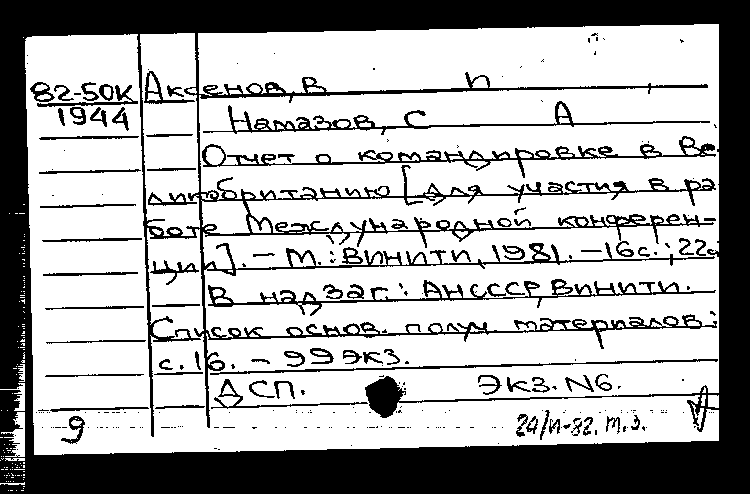 82-50К Аксенов, В П
1944 Намазов, С А
Отчет о командировке в Ве-
ликобританию [для участия в ра
боте Международной конферен-
ции]. – М.: ВИНИТИ, 1981. – 16с.; 22с
В надзаг.: АН СССР, ВИНИТИ.
Список основ. получ материалов:
с. 16. – 99 экз.
ДСП. Экз. N6.
9